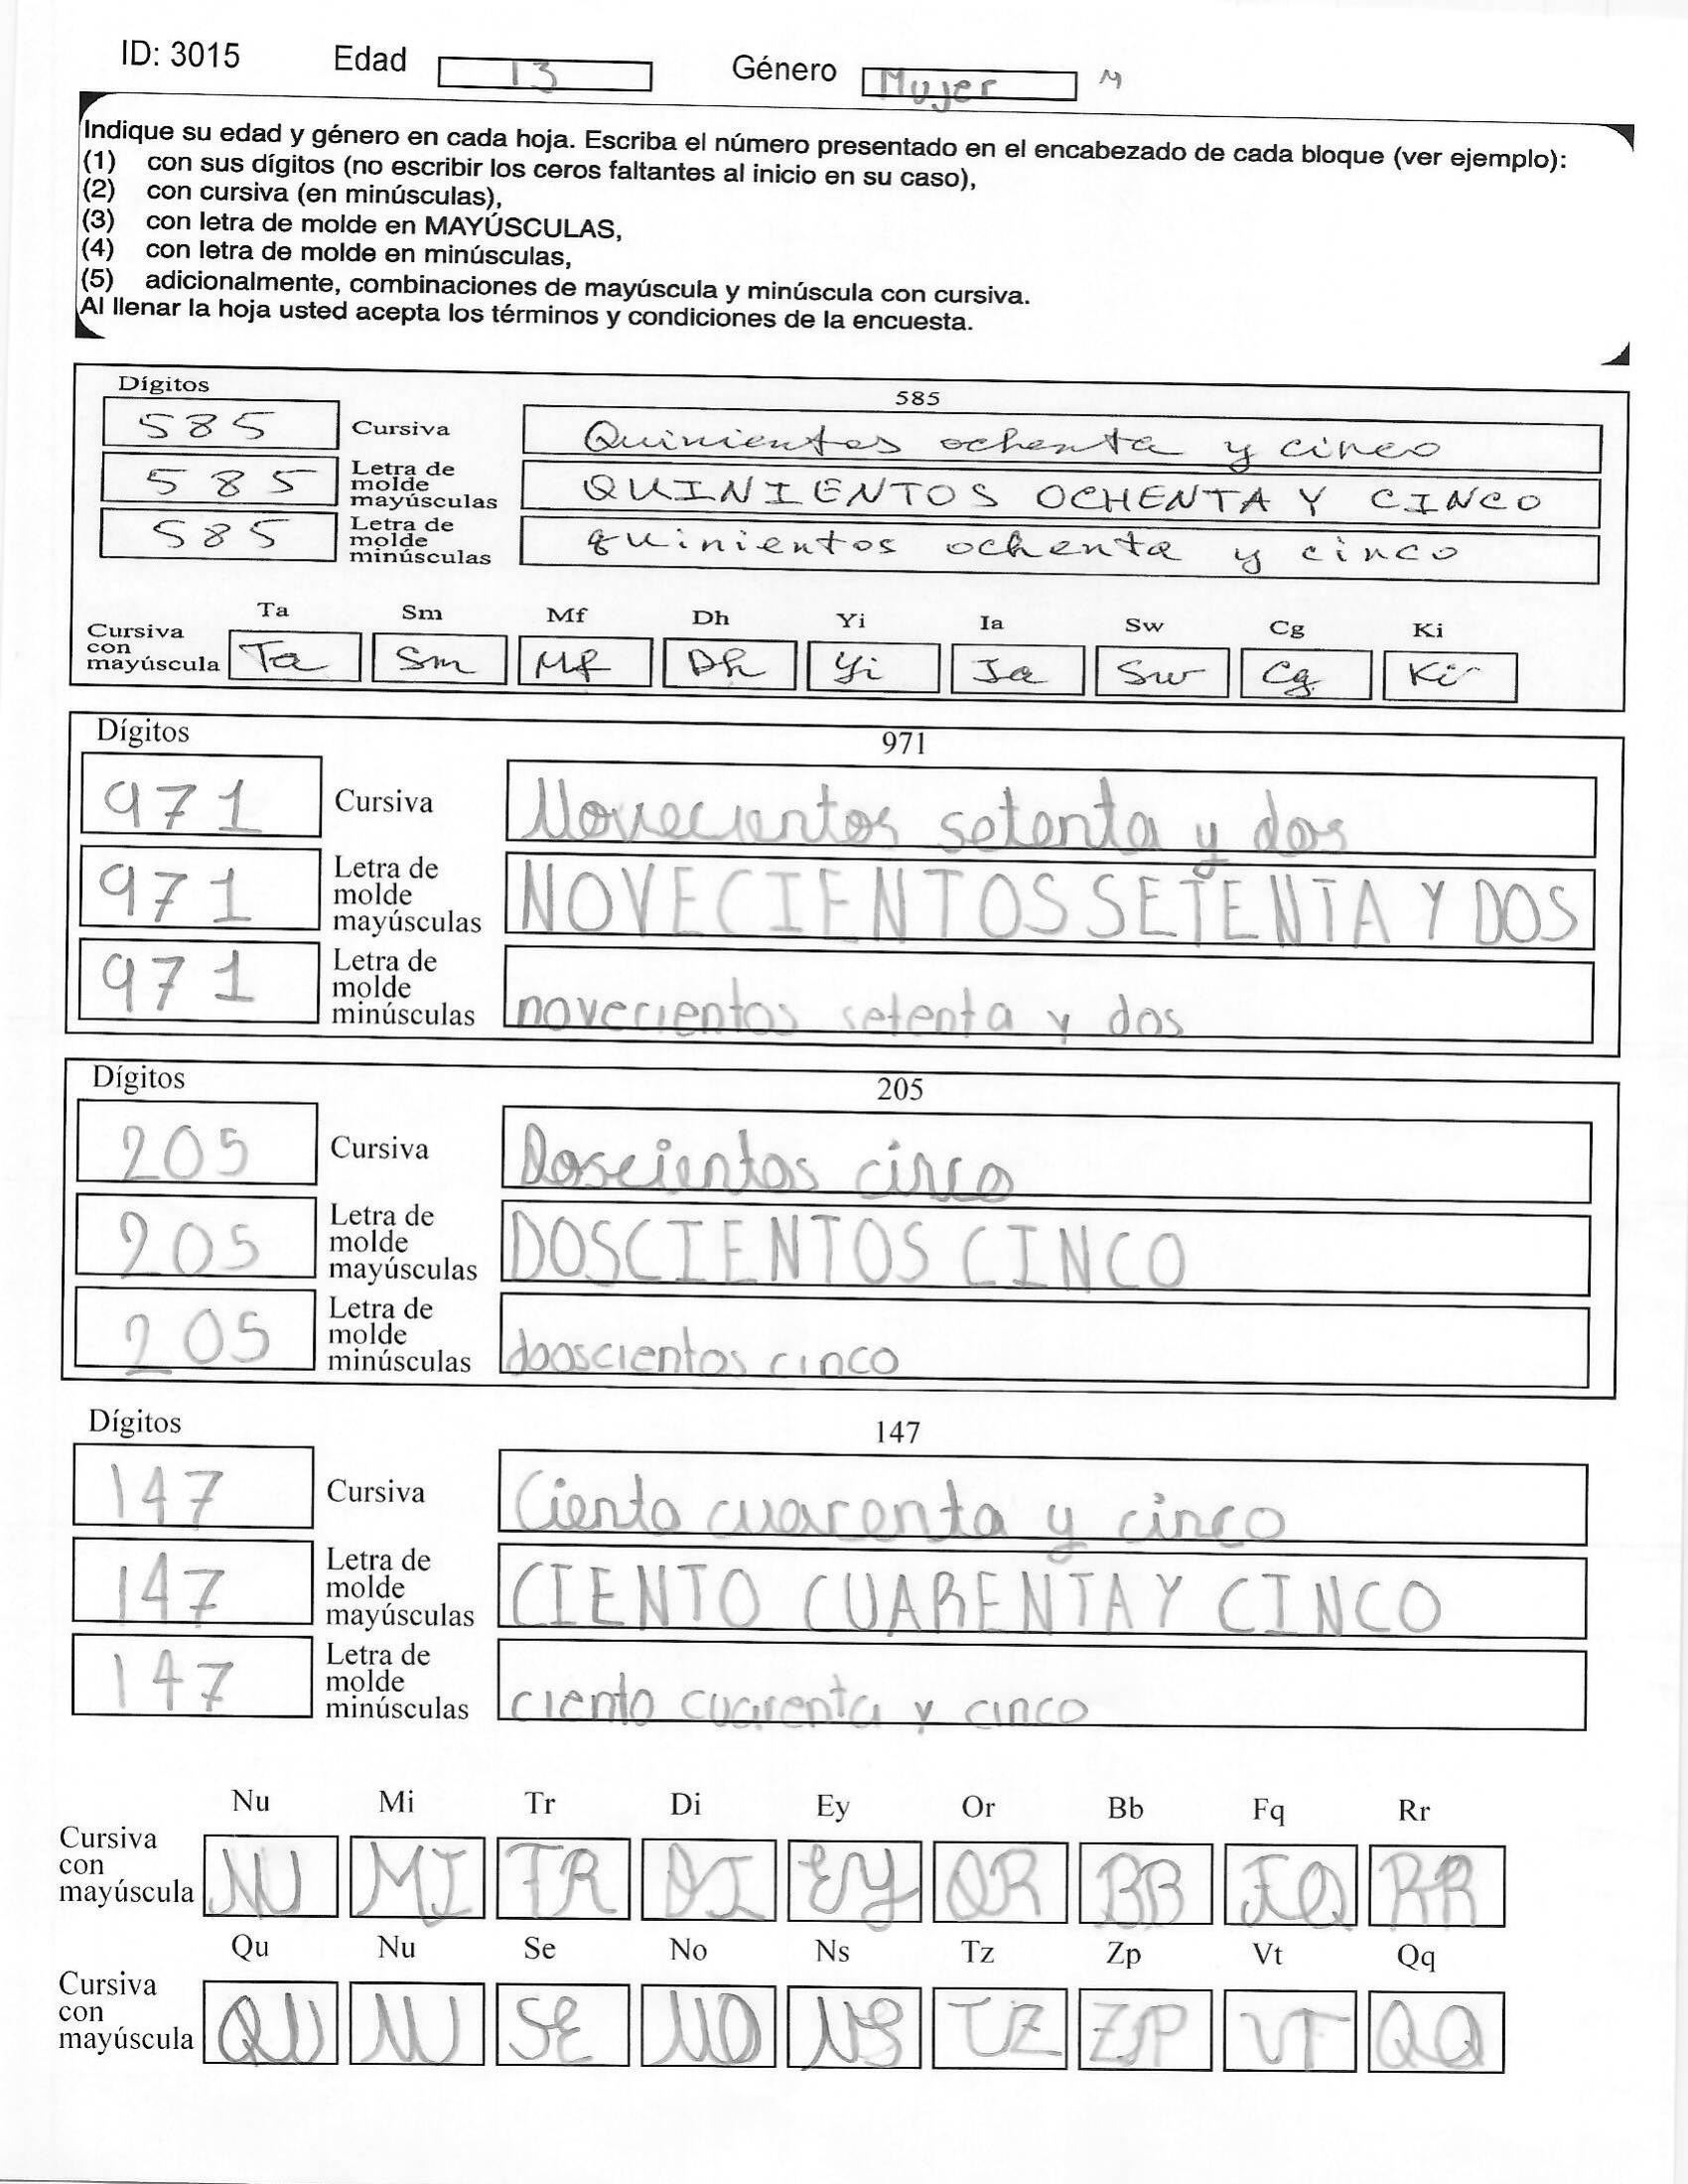 ID: 3015 Edad 13 Género Mujer M
Indique su edad y género en cada hoja. Escriba el número presentado en el encabezado de cada bloque (ver ejemplo):
(1) con sus dígitos (no escribir los ceros faltantes al inicio en su caso),
(2) con cursiva (en minúsculas),
(3) con letra de molde en MAYÚSCULAS,
(4) con letra de molde en minúsculas,
(5) adicionalmente, combinaciones de mayúscula y minúscula con cursiva.
Al llenar la hoja usted acepta los términos y condiciones de la encuesta.
Dígitos 585
585 Cursiva Quinientos ochenta y cinco
585 Letra de molde mayúsculas QUINIENTOS OCHENTA Y CINCO
585 Letra de molde minúsculas quinientos ochenta y cinco
Ta Sm Mf Dh Yi Ia Sw Cg Ki
Cursiva con mayúscula Ta Sm Mf Dh Yi Ia Sw Cg Ki
Dígitos 971
971 Cursiva Novecientos setenta y dos
971 Letra de molde mayúsculas NOVECIENTOS SETENTA Y DOS
971 Letra de molde minúsculas novecientos setenta y dos
Dígitos 205
205 Cursiva Doscientos cinco
205 Letra de molde mayúsculas DOSCIENTOS CINCO
205 Letra de molde minúsculas dooscientos cinco
Dígitos 147
147 Cursiva Ciento cuarenta y cinco
147 Letra de molde mayúsculas CIENTO CUARENTA Y CINCO
147 Letra de molde minúsculas ciento cuarenta y cinco
Nu Mi Tr Di Ey Or Bb Fq Rr
Cursiva con mayúscula NU MI TR DI EY OR BB FQ RR
Qu Nu Se No Ns Tz Zp Vt Qq
Cursiva con mayúscula QU NU SE NO NS TZ ZP VT QQ